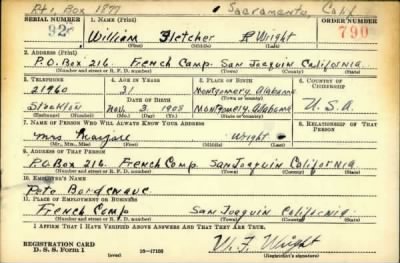 Rt. Box 1877 Sacramento Calif
SERIAL NUMBER 1. NAME (Print) ORDER NUMBER
William Fletcher Wright 790
(First) (Middle) (Last)
2. ADDRESS (Print)
P.O. Box 216 French Camp San Joaquin California
(Number and street or R. F. D. number) (Town) (County) (State)
3. TELEPHONE 4. AGE IN YEARS 5. PLACE OF BIRTH 6. COUNTRY OF CITIZENSHIP
21960 31 Montgomery Alabama
DATE OF BIRTH (Town or county)
Stockton Nov. 3 1908 Montgomery Alabama U.S.A.
(Exchange) (Number) (Mo.) (Day) (Yr.) (State or country)
7. NAME OF PERSON WHO WILL ALWAYS KNOW YOUR ADDRESS 8. RELATIONSHIP OF THAT PERSON
Mrs Wright
(Mr., Mrs., Miss) (First) (Middle) (Last)
9. ADDRESS OF THAT PERSON
P.O. Box 216 French Camp San Joaquin California
(Number and street or R. F. D. number) (Town) (County) (State)
10. EMPLOYER'S NAME
Pete Bordenave
11. PLACE OF EMPLOYMENT OR BUSINESS
French Camp San Joaquin California
(Number and street or R. F. D. number) (Town) (County) (State)
I AFFIRM THAT I HAVE VERIFIED ABOVE ANSWERS AND THAT THEY ARE TRUE.
REGISTRATION CARD
D. S. S. Form 1 (over) 16-17105 (Registrant's signature)
Wm. F. Wright